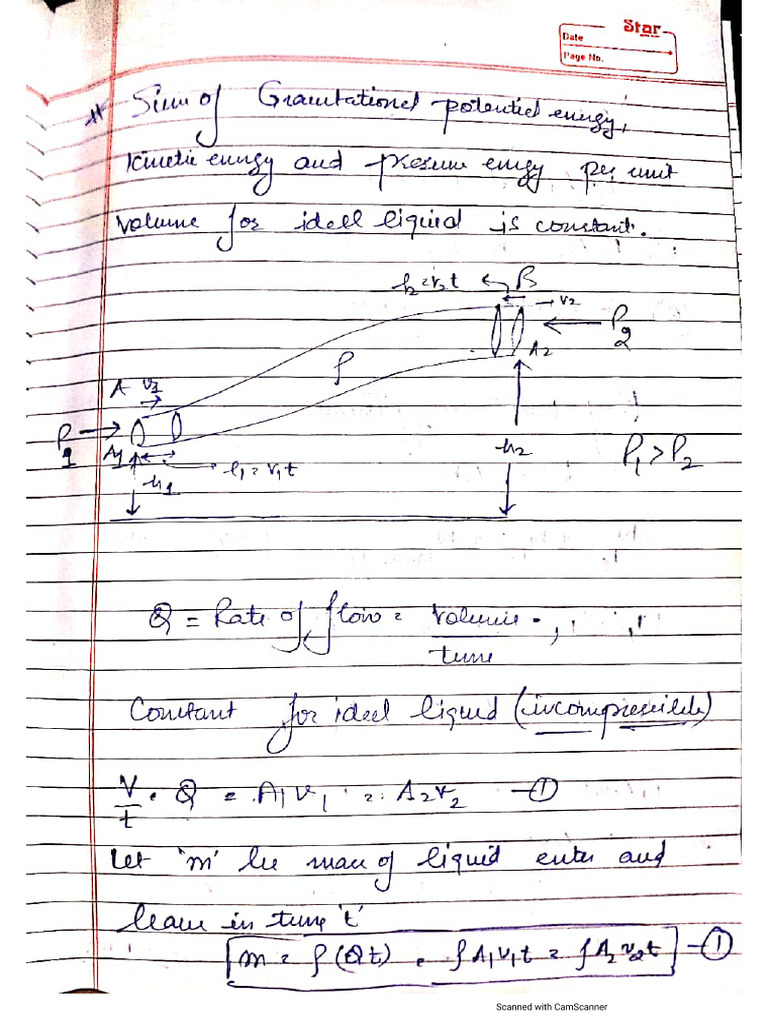 Star
Date
Page No.
# Sum of Gravitational potential energy,
kinetic energy and pressure energy per unit
volume for ideal liquid is constant.
l₂=v₂t B
v₂
P₂
A₂
ρ
A v₁
P₁
A₁
l₁ = v₁t
h₁
h₂
P₁ > P₂
Q = Rate of flow = volume
time
Constant for ideal liquid (incompressible)
V/t = Q = A₁v₁ = A₂v₂ —①
Let 'm' be mass of liquid enter and
leave in time 't'
m = ρ(Qt) = ρA₁v₁t = ρA₂v₂t —①
Scanned with CamScanner